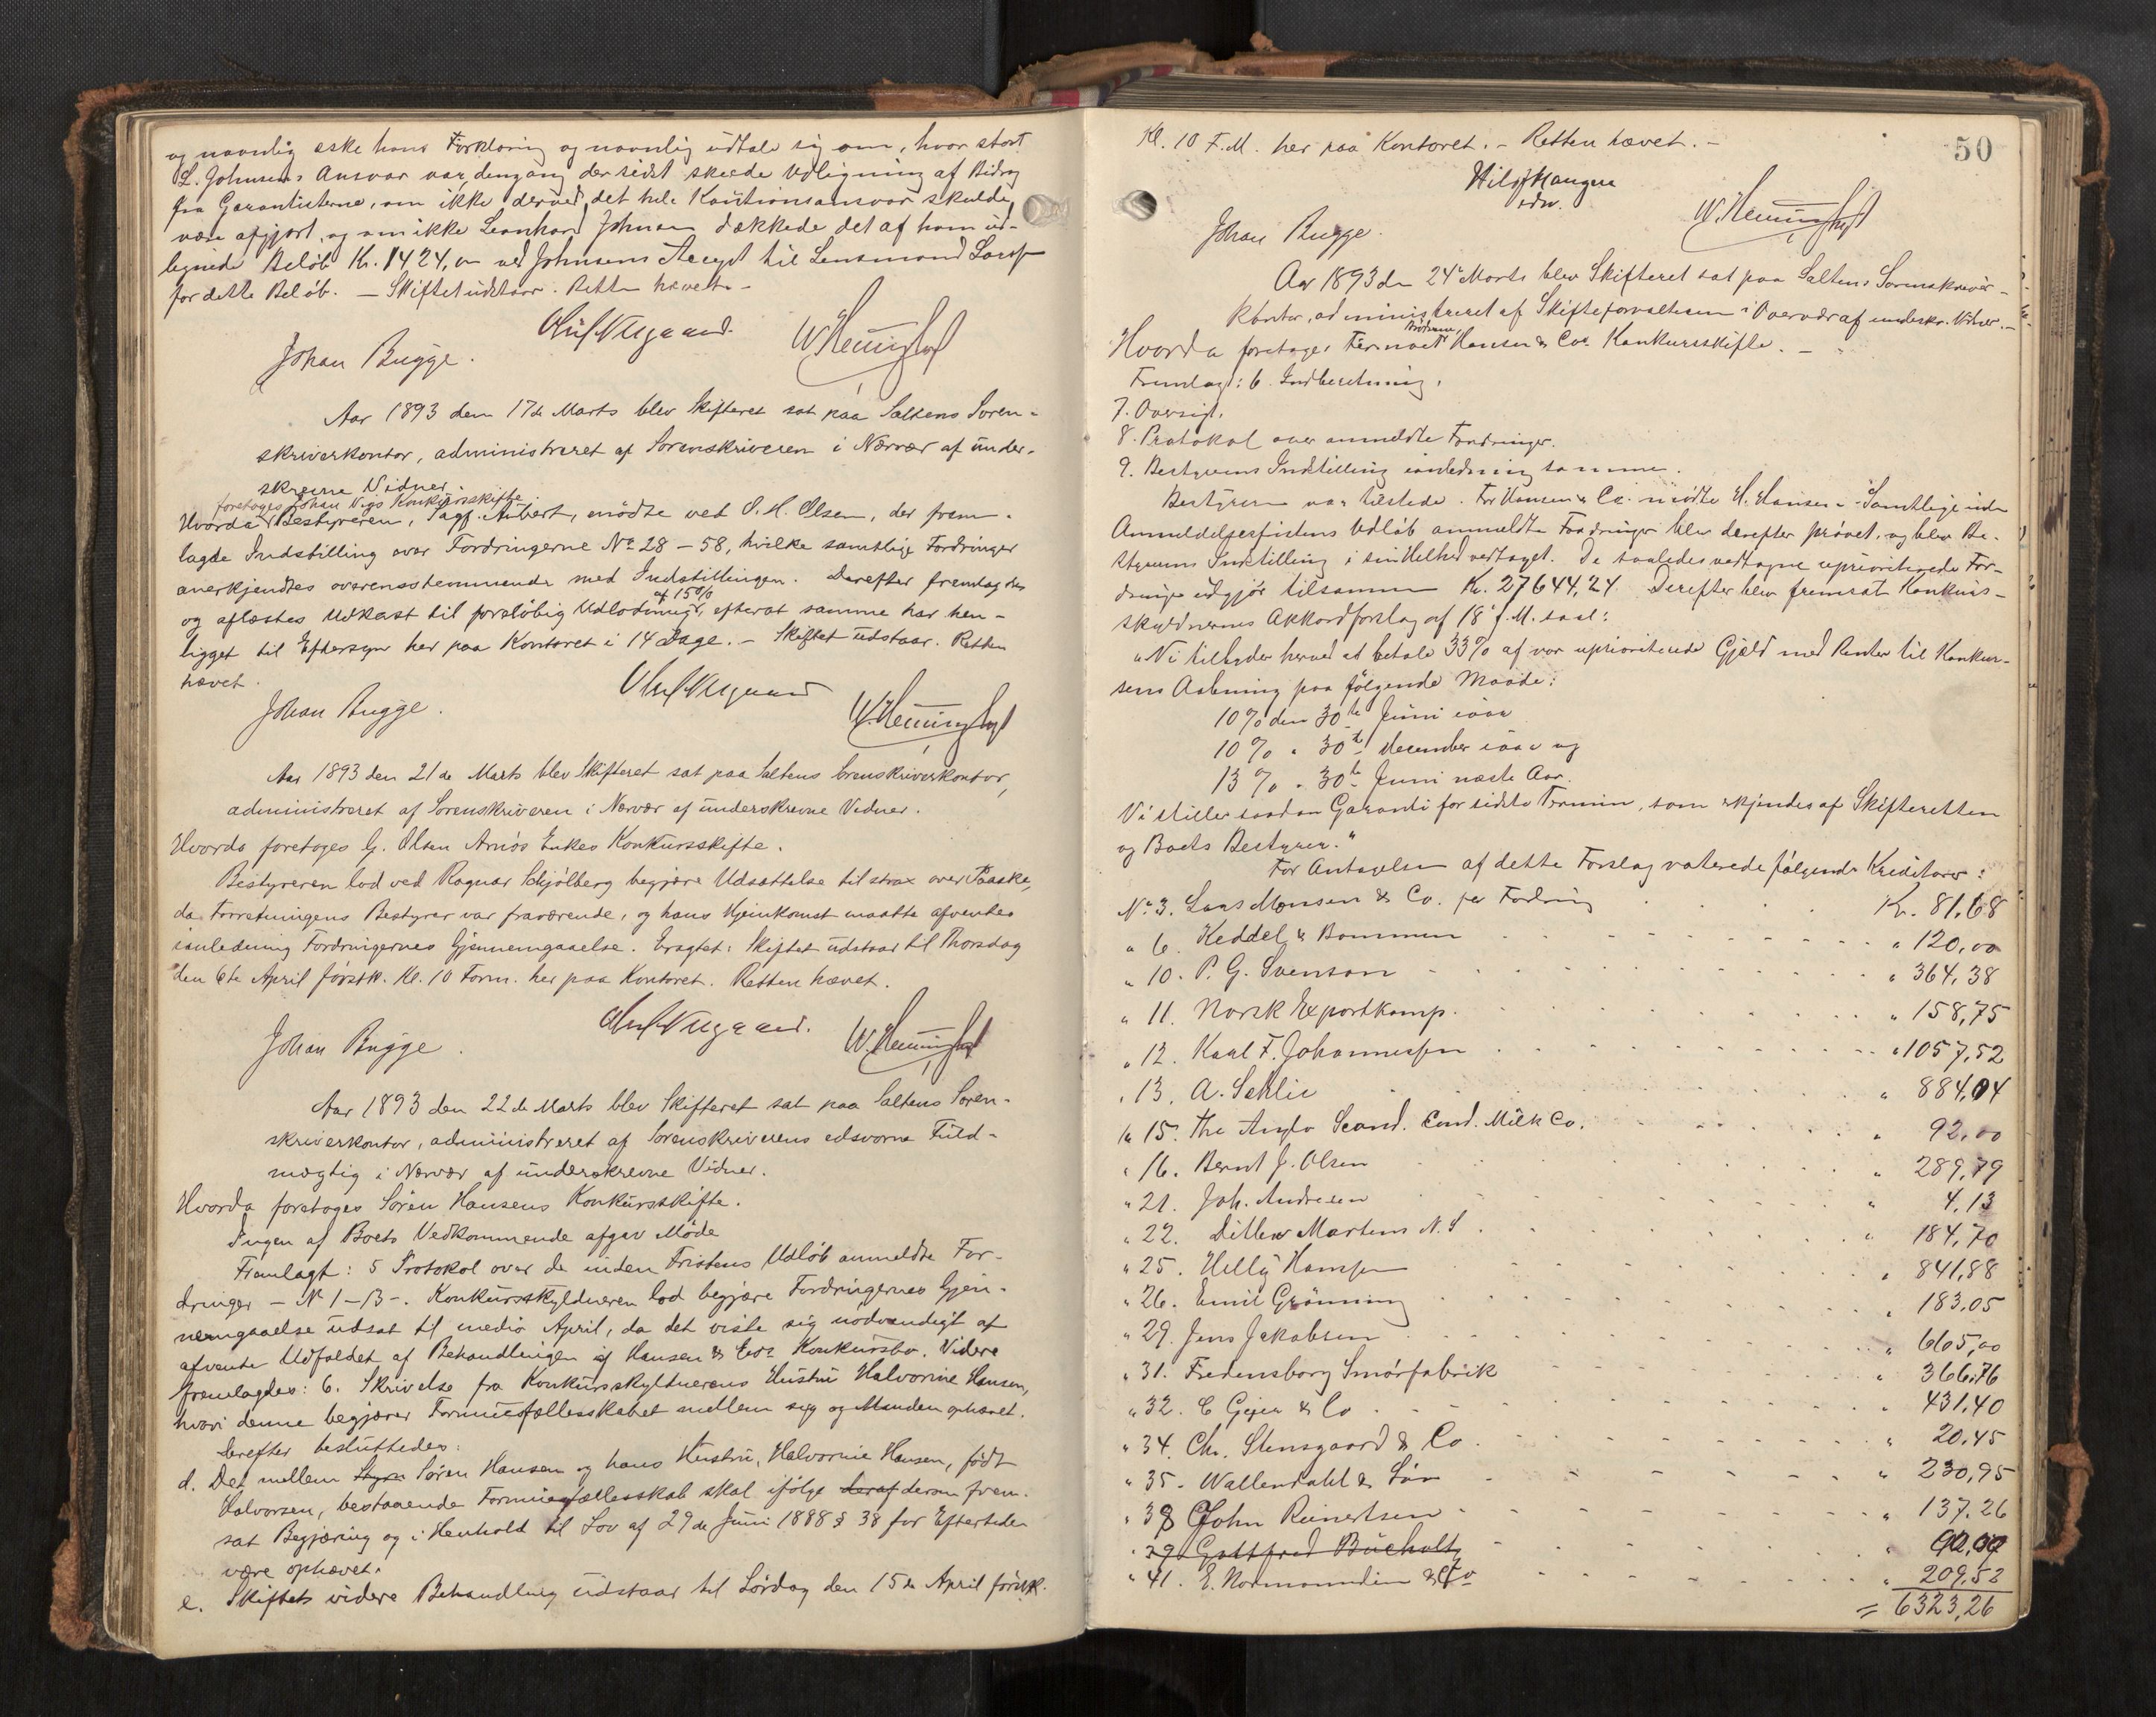 og navnlig æske hans Forklaring og navnlig udtale sig om, hvor stort
L. Johnsens Ansvar var, dengang der sidst skeede Udligning af Bidrag
fra Garantisterne, om ikke derved det hele Kautionsansvar skulde
være afgjort, og om ikke Leonhard Johnsen dækkede det af ham ud-
lignede Beløb Kr. 1424, ved Johnsens Accept til Lensmand
for dette Beløb. — Skiftet udstaar. Retten hævet. —
Johan Bugge.
Aar 1893 den 17de Marts blev Skifteret sat paa Saltens Soren-
skriverkontor, administreret af Sorenskriveren i Nærvær af under-
skrevne Vidner.
foretoges Johan Konkursskifte
Hvorda Bestyreren, Sagf. Aubert, mødte ved O. H. Olsen, der frem-
lagde Indstilling over Fordringerne No 28 – 58, hvilke samtlige Fordringer
anerkjendtes overensstemmende med Indstillingen. Derefter fremlagdes
af 15%
og aflæstes Udkast til foreløbig Udlodning, efterat samme har hen-
ligget til Eftersyn her paa Kontoret i 14 Dage. — Skiftet udstaar. Retten
hævet.
Johan Bugge.
Aar 1893 den 21de Marts blev Skifteret sat paa Saltens Sorenskriverkontor,
administreret af Sorenskriveren i Nærvær af underskrevne Vidner.
Hvorda foretoges G. Olsen Arnøs Enkes Konkursskifte.
Bestyreren lod ved Ragnar Schjølberg begjære Udsættelse til strax over Paaske,
da Forretningens Bestyrer var fraværende, og hans Hjemkomst maatte afventes
ianledning Fordringernes Gjennemgaaelse. Eragtet: Skiftet udstaar til Thorsdag
den 6te April førstk. Kl. 10 Form. her paa Kontoret. Retten hævet.
Johan Bugge.
Aar 1893 den 22de Marts blev Skifteret sat paa Saltens Soren-
skriverkontor, administreret af Sorenskriverens edsvorne Fuld-
mægtig i Nærvær af underskrevne Vidner.
Hvorda foretoges Søren Hansens Konkursskifte.
Ingen af Boets Vedkommende afgav Møde
Fremlagt: 5 Protokol over de inden Fristens Udløb anmeldte For-
dringer – No 1–13 –. Konkursskyldneren lod begjære Fordringernes Gjen-
nemgaaelse udsat til medio April, da det viste sig nødvendigt at
afvente Udfaldet af Behandlingen af Hansen & Cos Konkursbo. Videre
fremlagdes: 6. Skrivelse fra Konkursskyldnerens Hustru Halvorine Hansen,
hvori denne begjærer Formuesfællesskabet mellem sig og Manden ophævet.
Derefter besluttedes:
d. Det mellem Søren Hansen og hans Hustru, Halvorine Hansen, født
Halvorsen, bestaaende Formuesfællesskab skal ifølge deraf derom frem-
sat Begjæring og i Henhold til Lov af 29de Juni 1888 § 38 for Eftertiden
være ophævet.
e. Skiftets videre Behandling udstaar til Lørdag den 15de April førstk.
50
Kl. 10 F.M. her paa Kontoret. – Retten hævet. –
edsv.
Johan Bugge.
Aar 1893 den 24de Marts blev Skifteret sat paa Saltens Sorenskriver-
kontor, administreret af Skifteforvalteren i Overvær af underskr. Vidner. –
Brødrene
Hvorda foretoges Firmaet Hansen & Cos Konkursskifte. –
Fremlagt: 6. Indberetning,
7. Oversigt,
8. Protokol over anmeldte Fordringer.
9. Bestyrerens Indstilling ianledning samme.
Bestyreren var tilstede. For Hansen & Co. mødte H. Hansen. – Samtlige inden
Anmeldelsesfristens Udløb anmeldte Fordringer blev derefter prøvet, og blev Be-
styrerens Indstilling i sin Helhed vedtaget. De saaledes vedtagne uprioriterede For-
dringer udgjør tilsammen Kr. 27644,24. Derefter blev fremsat Konkurs-
skyldnernes Akkordforslag af 18de f. M. saal:
"Vi tilbyder herved at betale 33% af vor uprioriterede Gjæld med Renter til Konkur-
sens Aabning paa følgende Maade:
10% den 30te Juni iaar
10% " 30te December iaar og
13% " 30te Juni næste Aar.
Vi stiller saadan Garanti for sidste Termin, som erkjendes af Skifteretten
og Boets Bestyrer."
For Antagelsen af dette Forslag voterede følgende Kreditorer:
No 3. Lars Monsen & Co. for Fordring Kr. 81,68
" 6. Keddel & Bommen " 120,00
" 10. P. G. Svenson " 364,38
" 11. Norsk Exportkomp. " 158,75
" 12. Karl F. Johannessen " 1057,52
" 13. A. Schlie " 884,04
" 15. The Anglo Scand. Cond. Milk Co. " 92,00
" 16. Bernt J. Olsen " 289,79
" 21. Joh. Andresen " 4,13
" 22. Ditlev Martens N. S. " 184,70
" 25. Helly Hansen " 841,88
" 26. Emil Grønning " 183,05
" 29. Jens Jakobsen " 605,00
" 31. Fredensborg Smørfabrik " 366,76
" 32. C Geijer & Co " 431,40
" 34. Chr. Stensgaard & Co. " 20,45
" 35. Wallendahl & Søn " 230,95
" 38 John Reinertsen " 137,26
" 39 Gottfred Bucholtz
" 41. E. Normannden & Co " 209,52
= 6323,26